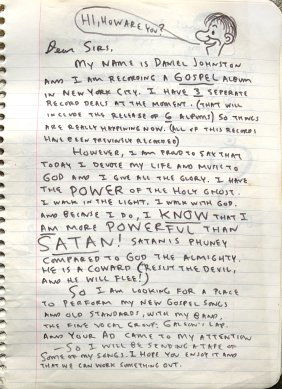 HI, HOW ARE YOU?
Dear Sirs,
MY NAME IS DANIEL JOHNSTON
AND I AM RECORDING A GOSPEL ALBUM
IN NEW YORK CITY. I HAVE 3 SEPERATE
RECORD DEALS AT THE MOMENT. (THAT WILL
INCLUDE THE RELEASE OF 6 ALBUMS) SO THINGS
ARE REALLY HAPPENING NOW. (ALL OF THIS RECORDS
HAVE BEEN PREVIOUSLY RECORDED)
HOWEVER, I AM PROUD TO SAY THAT
TODAY I DEVOTE MY LIFE AND MUSIC TO
GOD AND I GIVE ALL THE GLORY. I HAVE
THE POWER OF THE HOLY GHOST.
I WALK IN THE LIGHT. I WALK WITH GOD.
AND BECAUSE I DO, I KNOW THAT I
AM MORE POWERFUL THAN
SATAN! SATAN IS PHUNEY
COMPARED TO GOD THE ALMIGHTY.
HE IS A COWARD (RESIST THE DEVIL,
AND HE WILL FLEE!)
SO I AM LOOKING FOR A PLACE
TO PERFORM MY NEW GOSPEL SONGS
AND OLD STANDARDS, WITH MY BAND,
THE FINE VOCAL GROUP, LAP.
AND YOUR AD CAME TO MY ATTENTION
- SO I WILL BE SENDING A TAPE OF
SOME OF MY SONGS. I HOPE YOU ENJOY IT AND
THAT WE CAN WORK SOMETHING OUT.